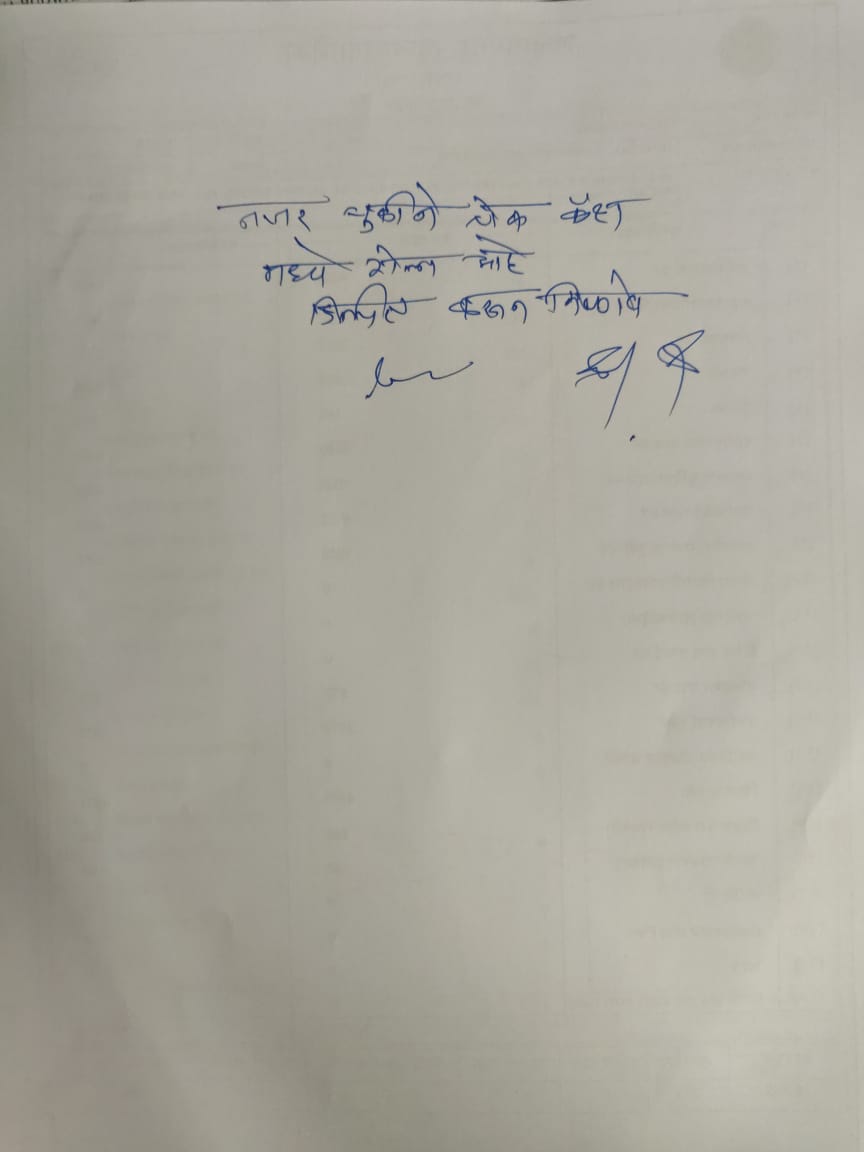 नजर चुकीने चेक कॅश
मध्ये गेला आहे
डिलीट करून मिळावे